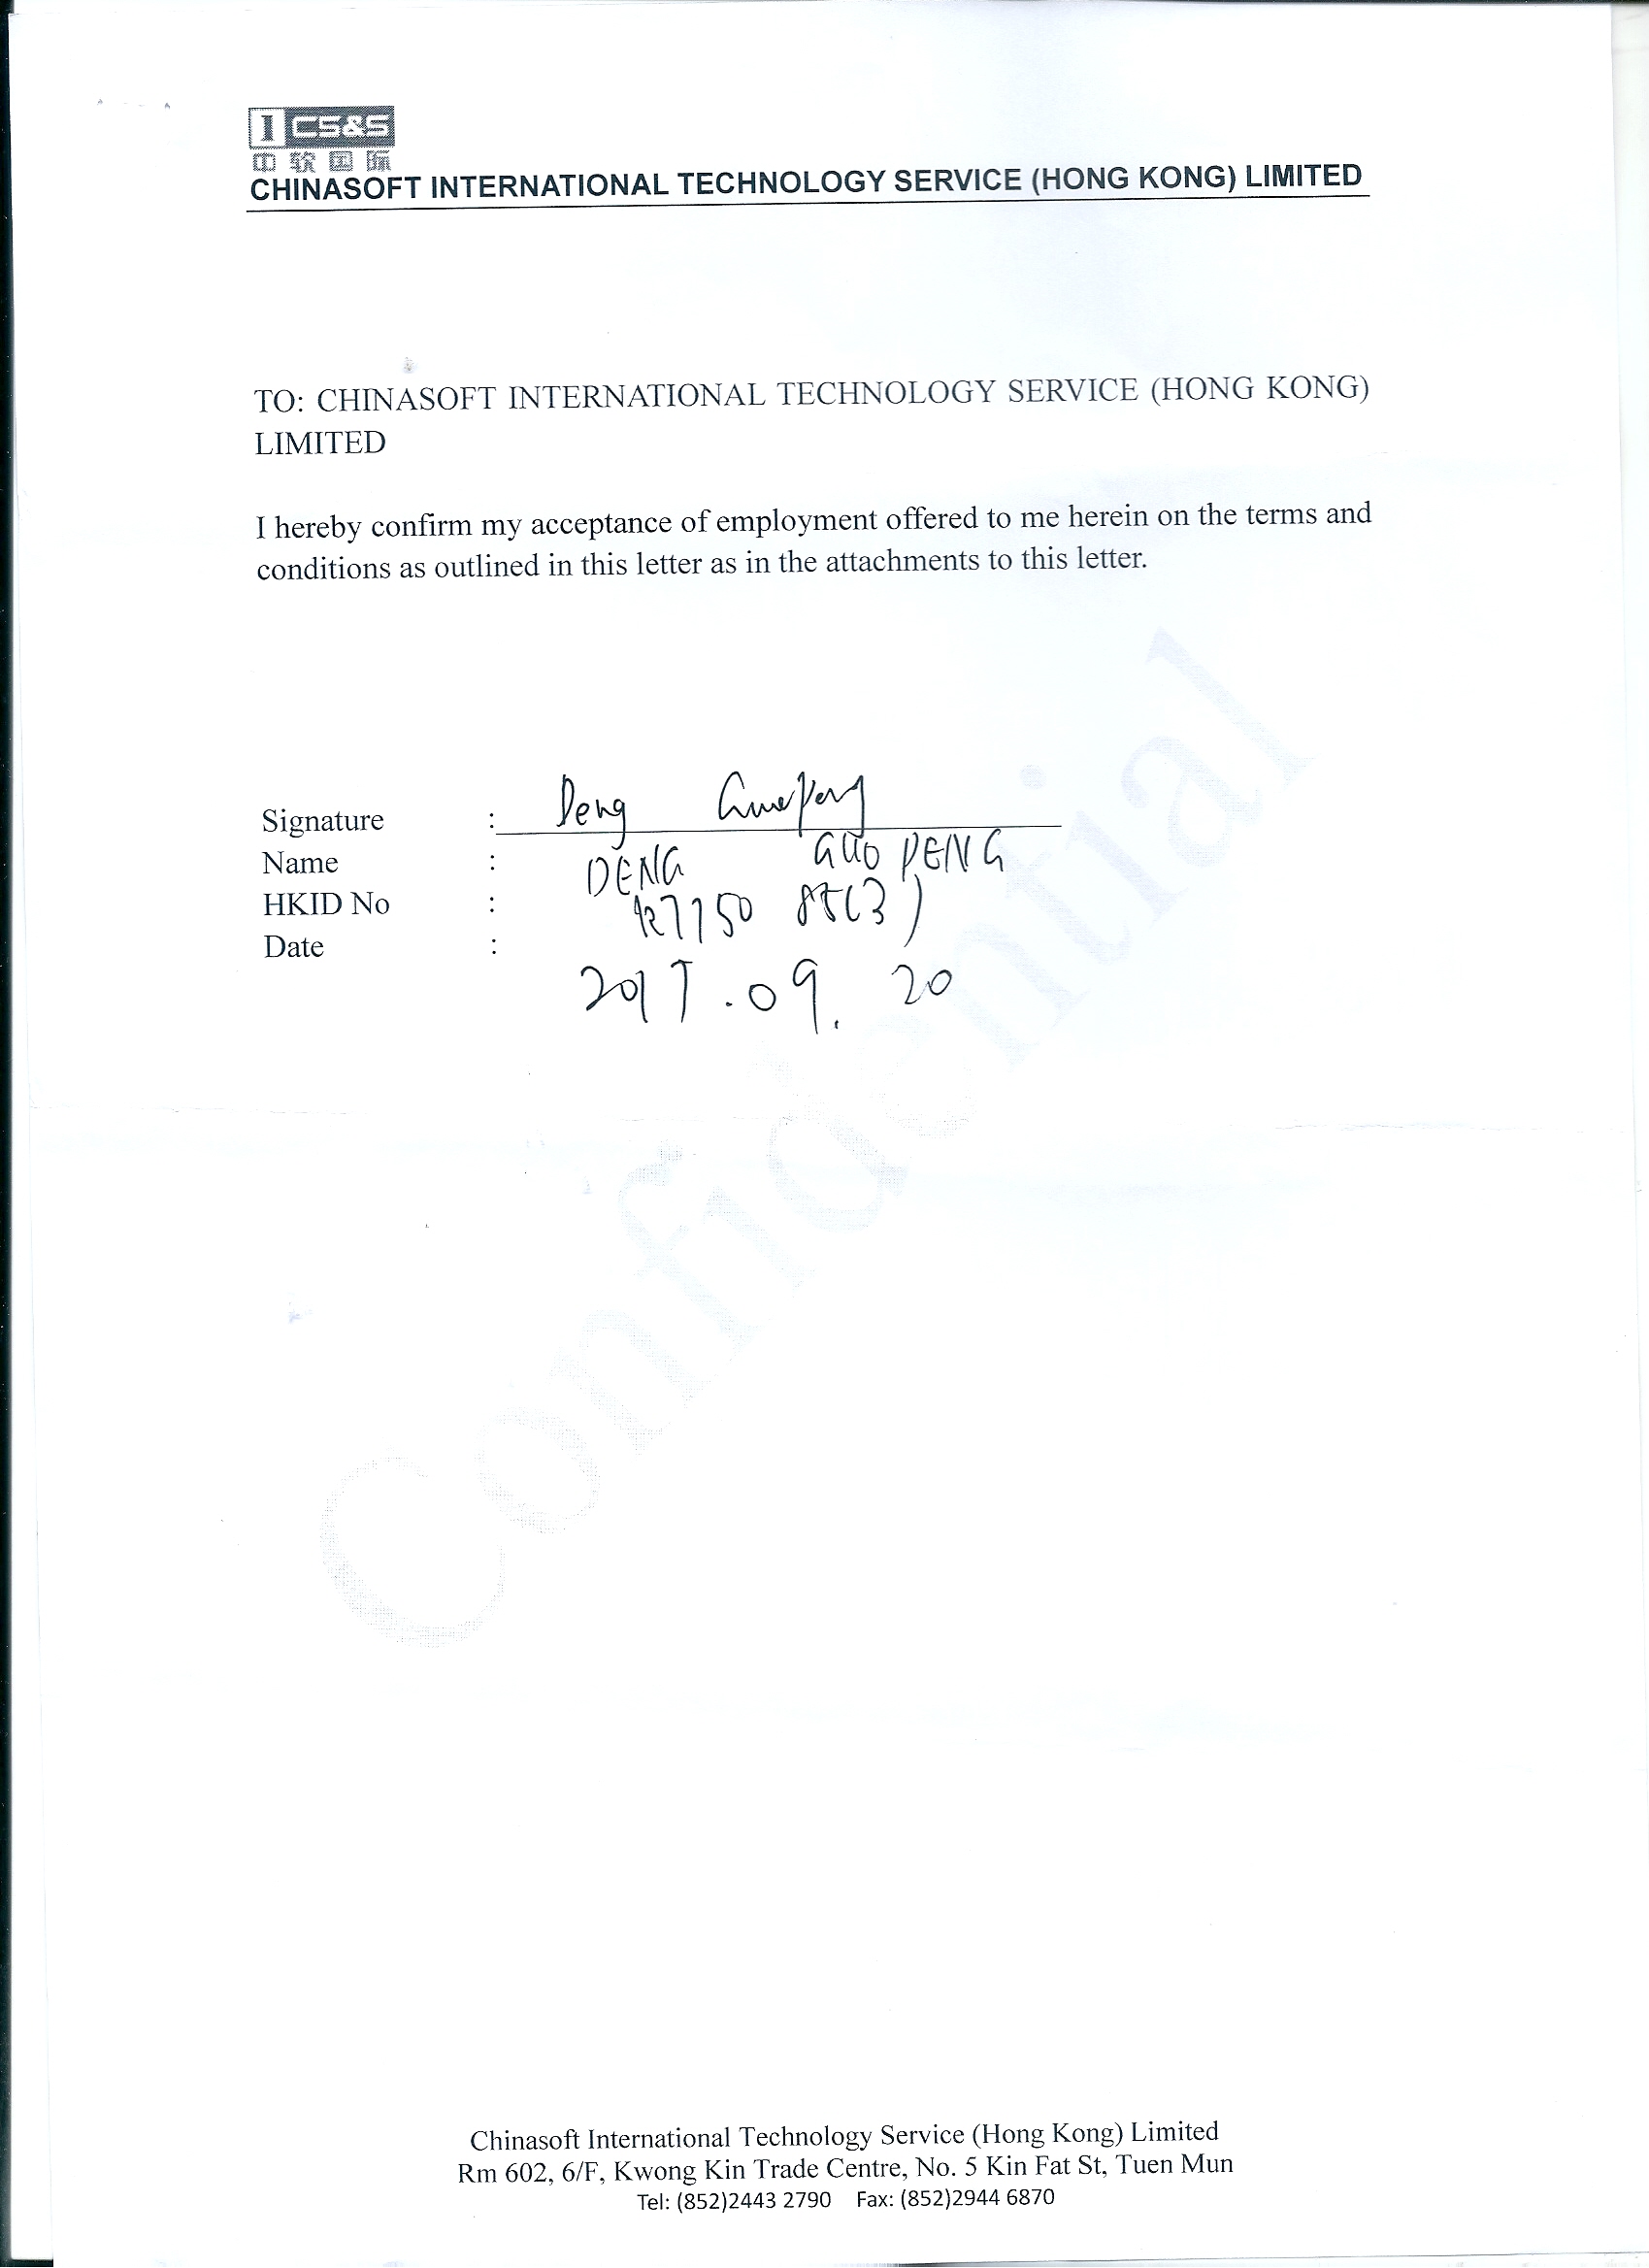 1 CS&S
中软国际
CHINASOFT INTERNATIONAL TECHNOLOGY SERVICE (HONG KONG) LIMITED
TO: CHINASOFT INTERNATIONAL TECHNOLOGY SERVICE (HONG KONG)
LIMITED
I hereby confirm my acceptance of employment offered to me herein on the terms and
conditions as outlined in this letter as in the attachments to this letter.
Signature : Deng Guopeng
Name : DENG GUO PENG
HKID No :
Date : 2017.09.20
Confidential
Chinasoft International Technology Service (Hong Kong) Limited
Rm 602, 6/F, Kwong Kin Trade Centre, No. 5 Kin Fat St, Tuen Mun
Tel: (852)2443 2790 Fax: (852)2944 6870